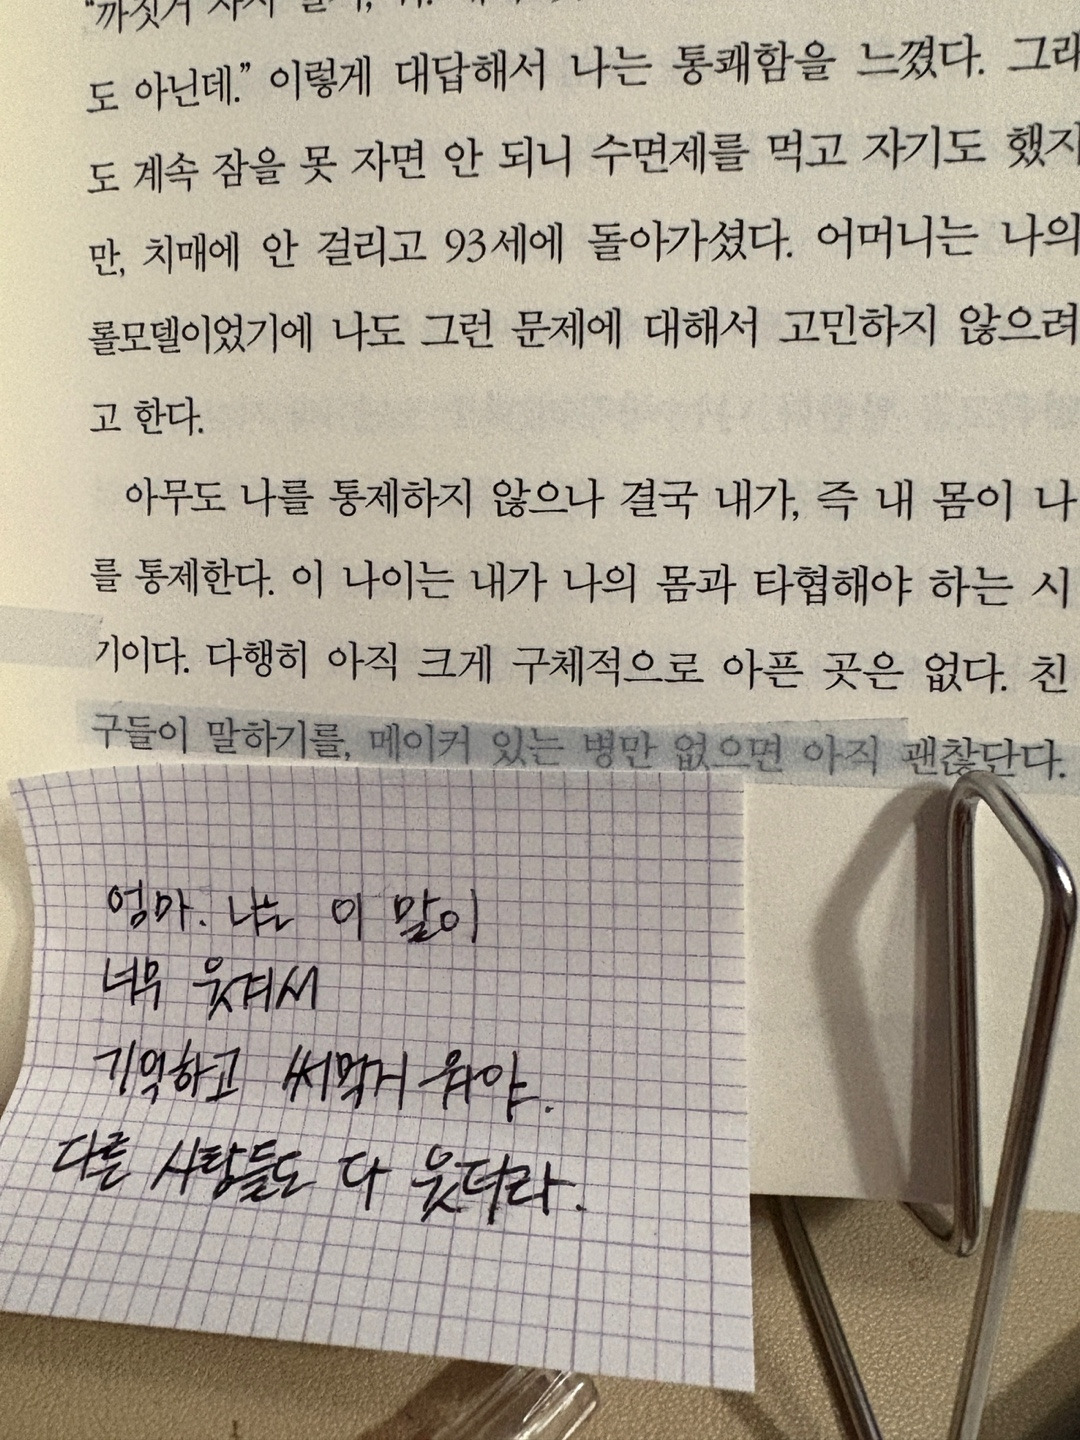 도 아닌데.” 이렇게 대답해서 나는 통쾌함을 느꼈다. 그래
도 계속 잠을 못 자면 안 되니 수면제를 먹고 자기도 했지
만, 치매에 안 걸리고 93세에 돌아가셨다. 어머니는 나의
롤모델이었기에 나도 그런 문제에 대해서 고민하지 않으려
고 한다.
아무도 나를 통제하지 않으나 결국 내가, 즉 내 몸이 나
를 통제한다. 이 나이는 내가 나의 몸과 타협해야 하는 시
기이다. 다행히 아직 크게 구체적으로 아픈 곳은 없다. 친
구들이 말하기를, 메이커 있는 병만 없으면 아직 괜찮단다.
엄마. 나는 이 말이
너무 웃겨서
기억하고 써먹거
다른 사람들도 다 웃더라.